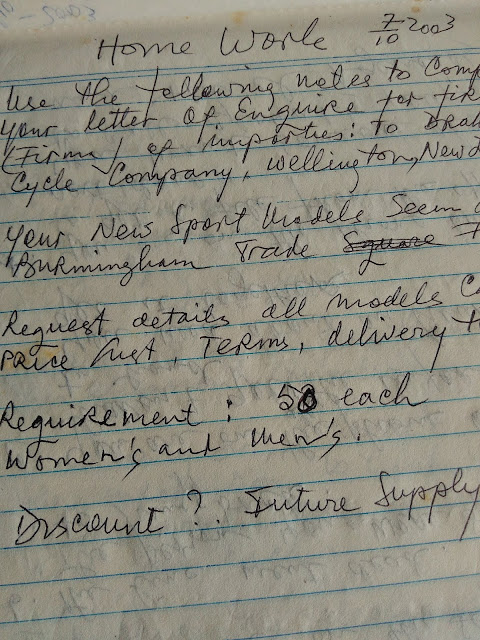 - 2003
Home Work 7/10 2003
Use the following notes to Comp
your letter of Enquire for fir
(Firms) of importies: to Drak
Cycle Company, Wellington, New
Your New Sport Models Seem
Burmingham Trade Square F
Request details all models C
Price List, Terms, delivery t
Requirement : 50 each
Women's and Men's.
Discount ? Future Supply